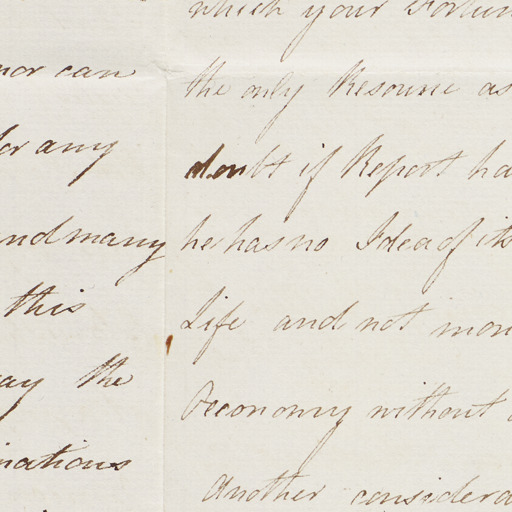 nor can
for any
and many
this
ay the
inations
which your Fortun
the only Resource as
doubt if Report ha
he has no Idea of its
Life and not mon
Oeconomy without
Another considera